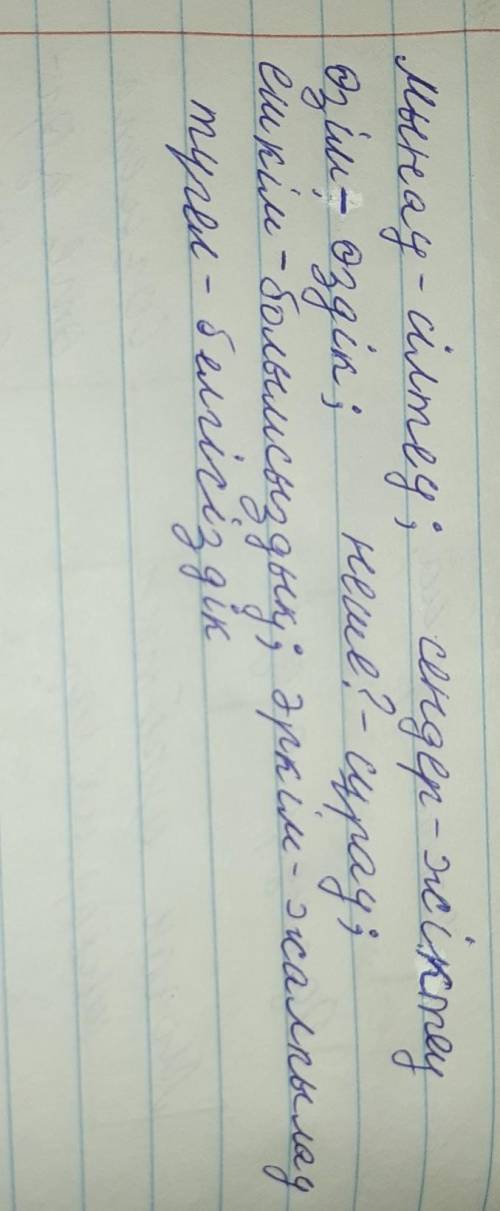 Мынау - сілтеу; сендер - жіктеу
өзім - өздік; неше? - сұрау;
ешкім - болымсыздық; әркім - жалпылау
түгел - белгісіздік